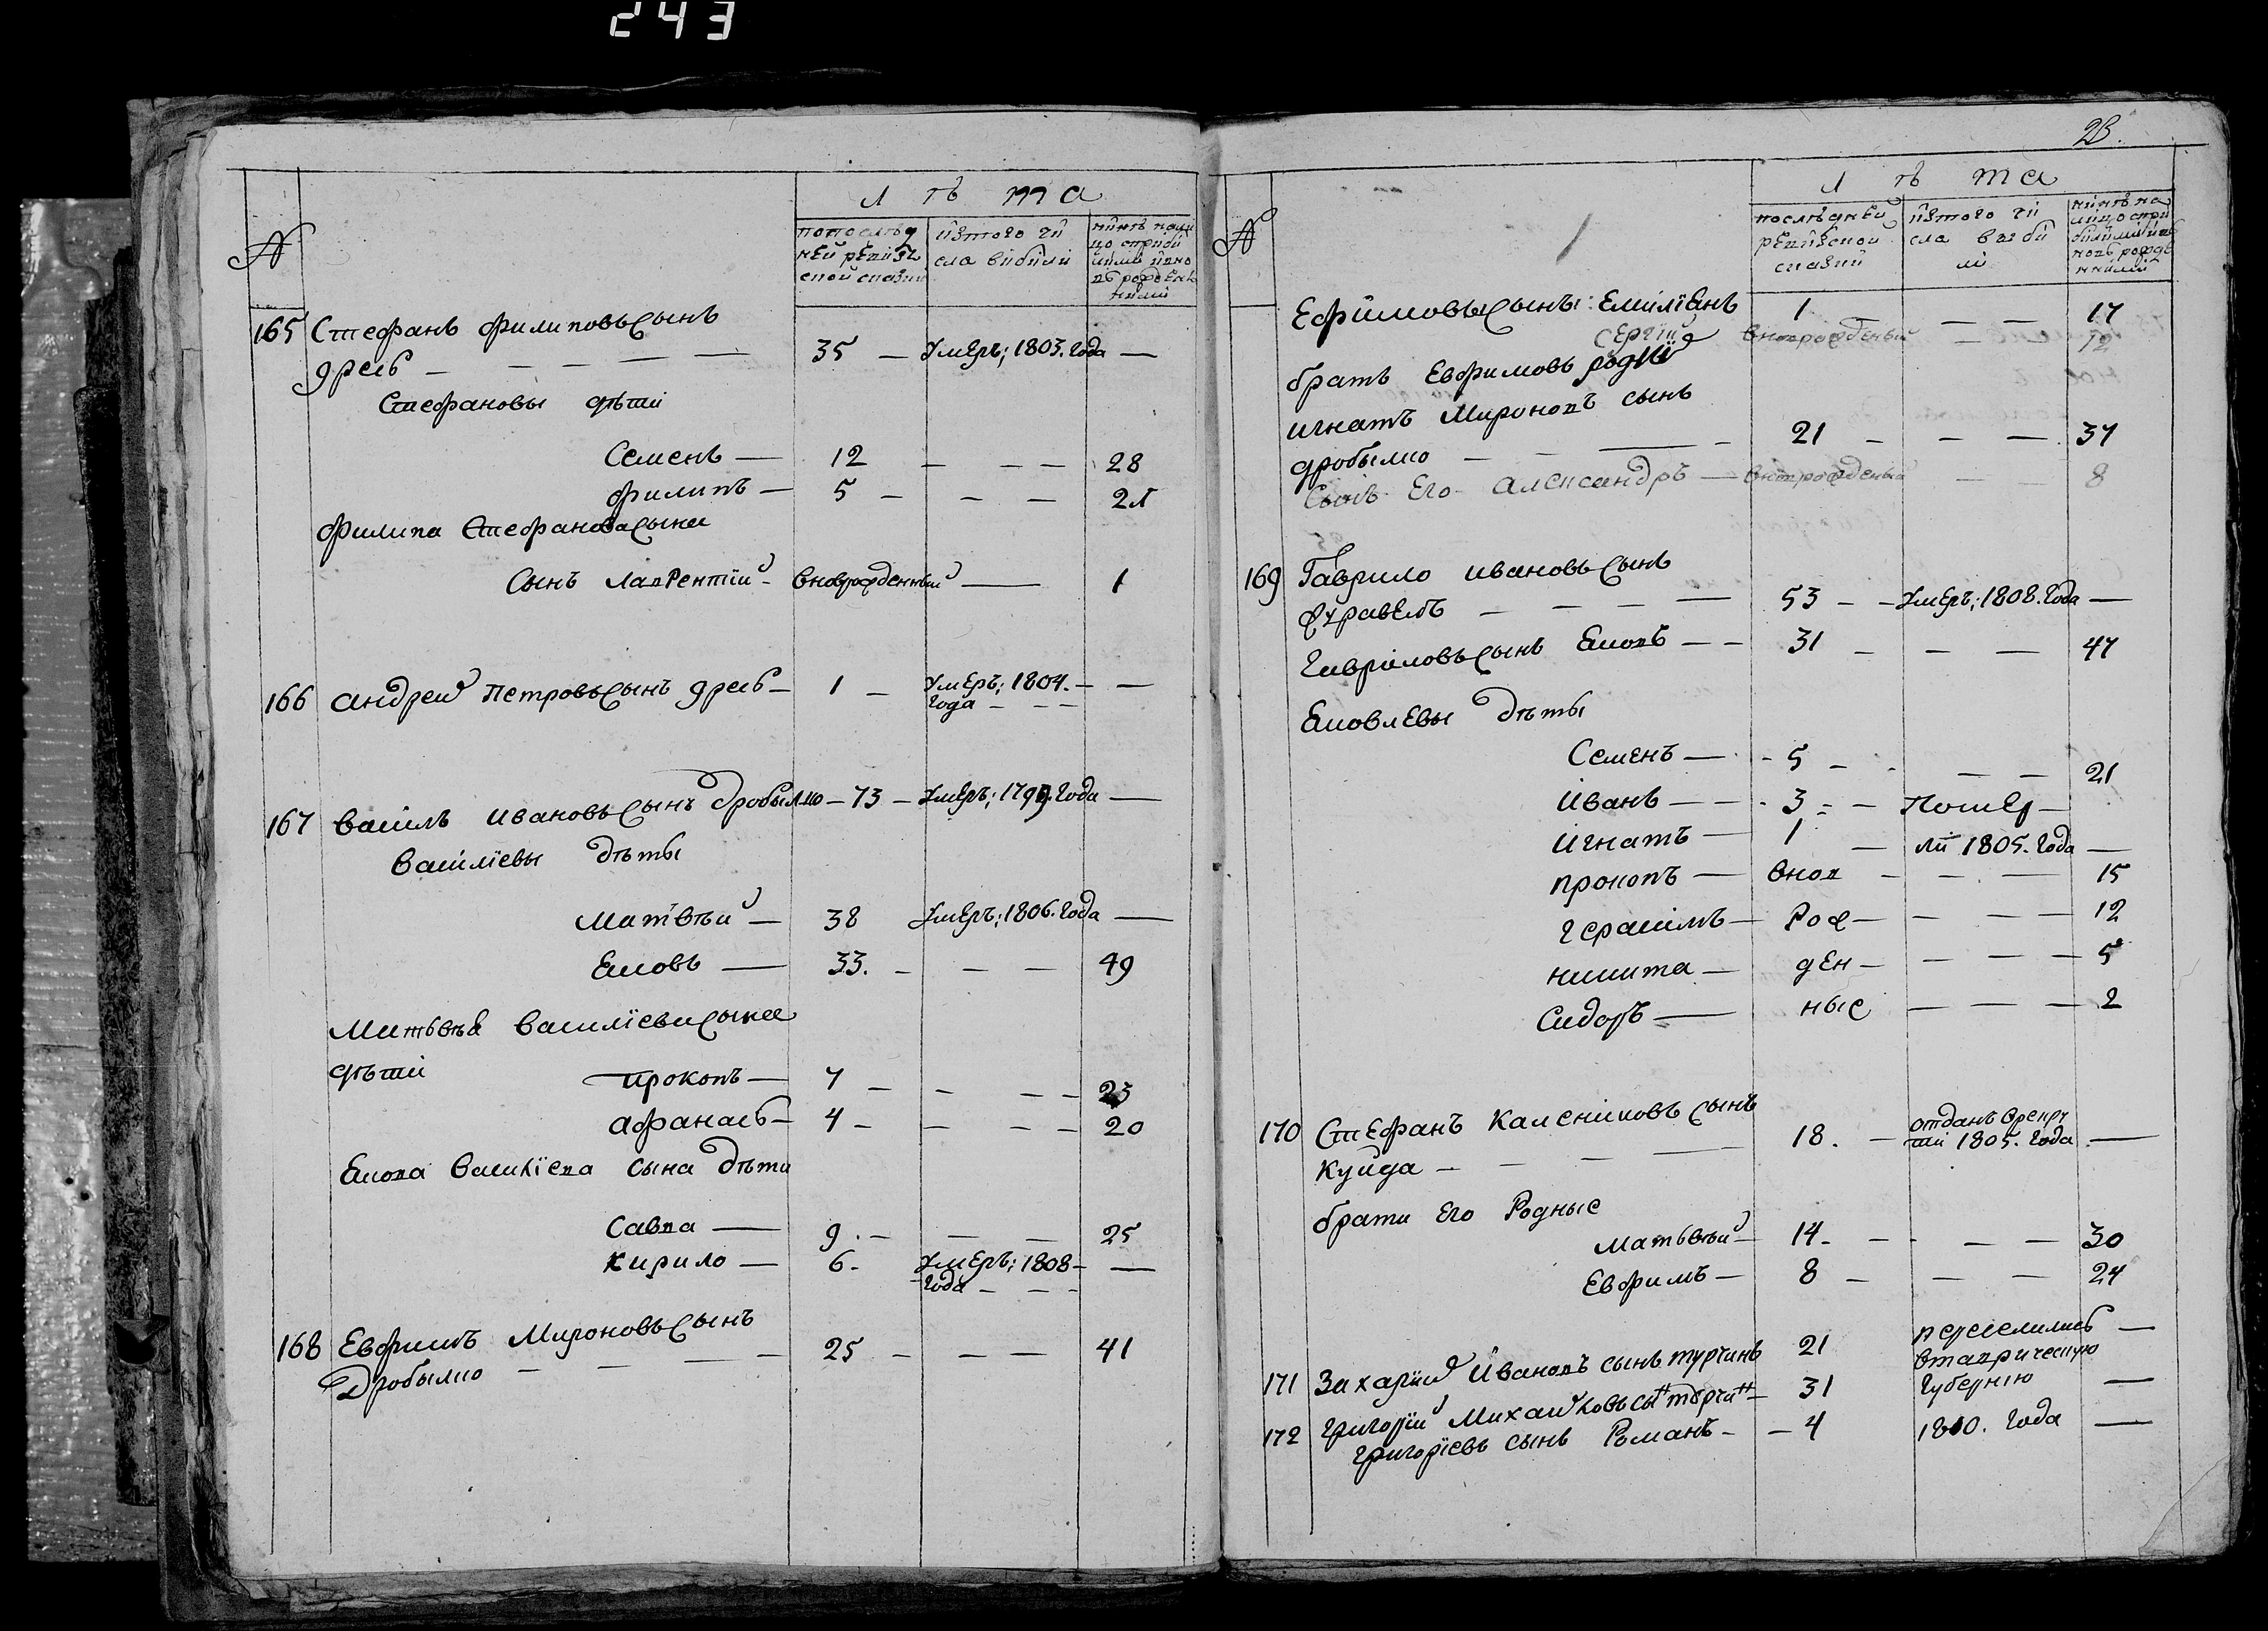 243
Лѣта
№
по последней ревизской сказки
из того числа выбыли
165 Стефанъ Филиповъ сынъ
35 — Умеръ; 1803. Года —
Стефановы дѣти
Семенъ — 12 — — — 28
Филипъ — 5 — — —
Филипа Стефанова сына
Сынъ Лаврентій — вноврожденный — 1
166 Андрей Петровъ сынъ — 1 — Умеръ; 1804. — —
Года — — —
167 Василь Ивановъ сынъ Дробылко — 73 — Умеръ; 1799. Года —
Василіевы дѣты
Матвѣй — 38 Умеръ; 1806. Года —
Яковъ — 33. — — — 49
Матвѣя Василіева сына
дѣти Прокопъ — 7 — — — — 23
Афанась — 4 — — — — 20
Якова Василіева сына дѣти
Савва — 9. — — — 25
Кирило — 6. Умеръ; 1808 — —
Года — — —
168 Евфимъ Мироновъ сынъ
Дробылко — — — — 25 — — — 41
23.
Лѣта
№
последней ревизской сказки
из того числа выбыли
Ефимовы сыны: Емиліянъ 1 — — — 17
Сергій вноврожденый — — 12
братъ Евфимовъ родный
Игнатъ Мироновъ сынъ
дробылко — — — — 21 — — — 37
Сынъ Его Александръ — вноврожденый — — 8
169 Гаврило Ивановъ сынъ
Журавель — — — — 53 — — Умеръ; 1808. Года —
Гавриловъ сынъ Яковъ — — 31 — — — 47
Яковлевы дѣты
Семенъ — - 5 — - — — 21
Иванъ — — - 3 - — Помер —
Игнатъ — 1 — ли 1805. Года —
Прокопъ — внов — — — 15
Герасимъ — рож — — — — 12
Никита — ден — — — — 5
Сидоръ — ные — — — 2
170 Стефанъ Калениковъ сынъ
Куйда — — — — 18. — отданъ в рекру
ти 1805. Года —
брати Его Родные
Матьвѣй — 14. — - — — 30
Евфимъ — 8 — — — 24
171 Захарій Ивановъ сынъ турчинъ 21 переселились —
втаврическую
172 Григорій Михайловъ сынъ турчинъ — 31 Губернію —
Григоріевъ сынъ Романъ — — 4 1810. Года —